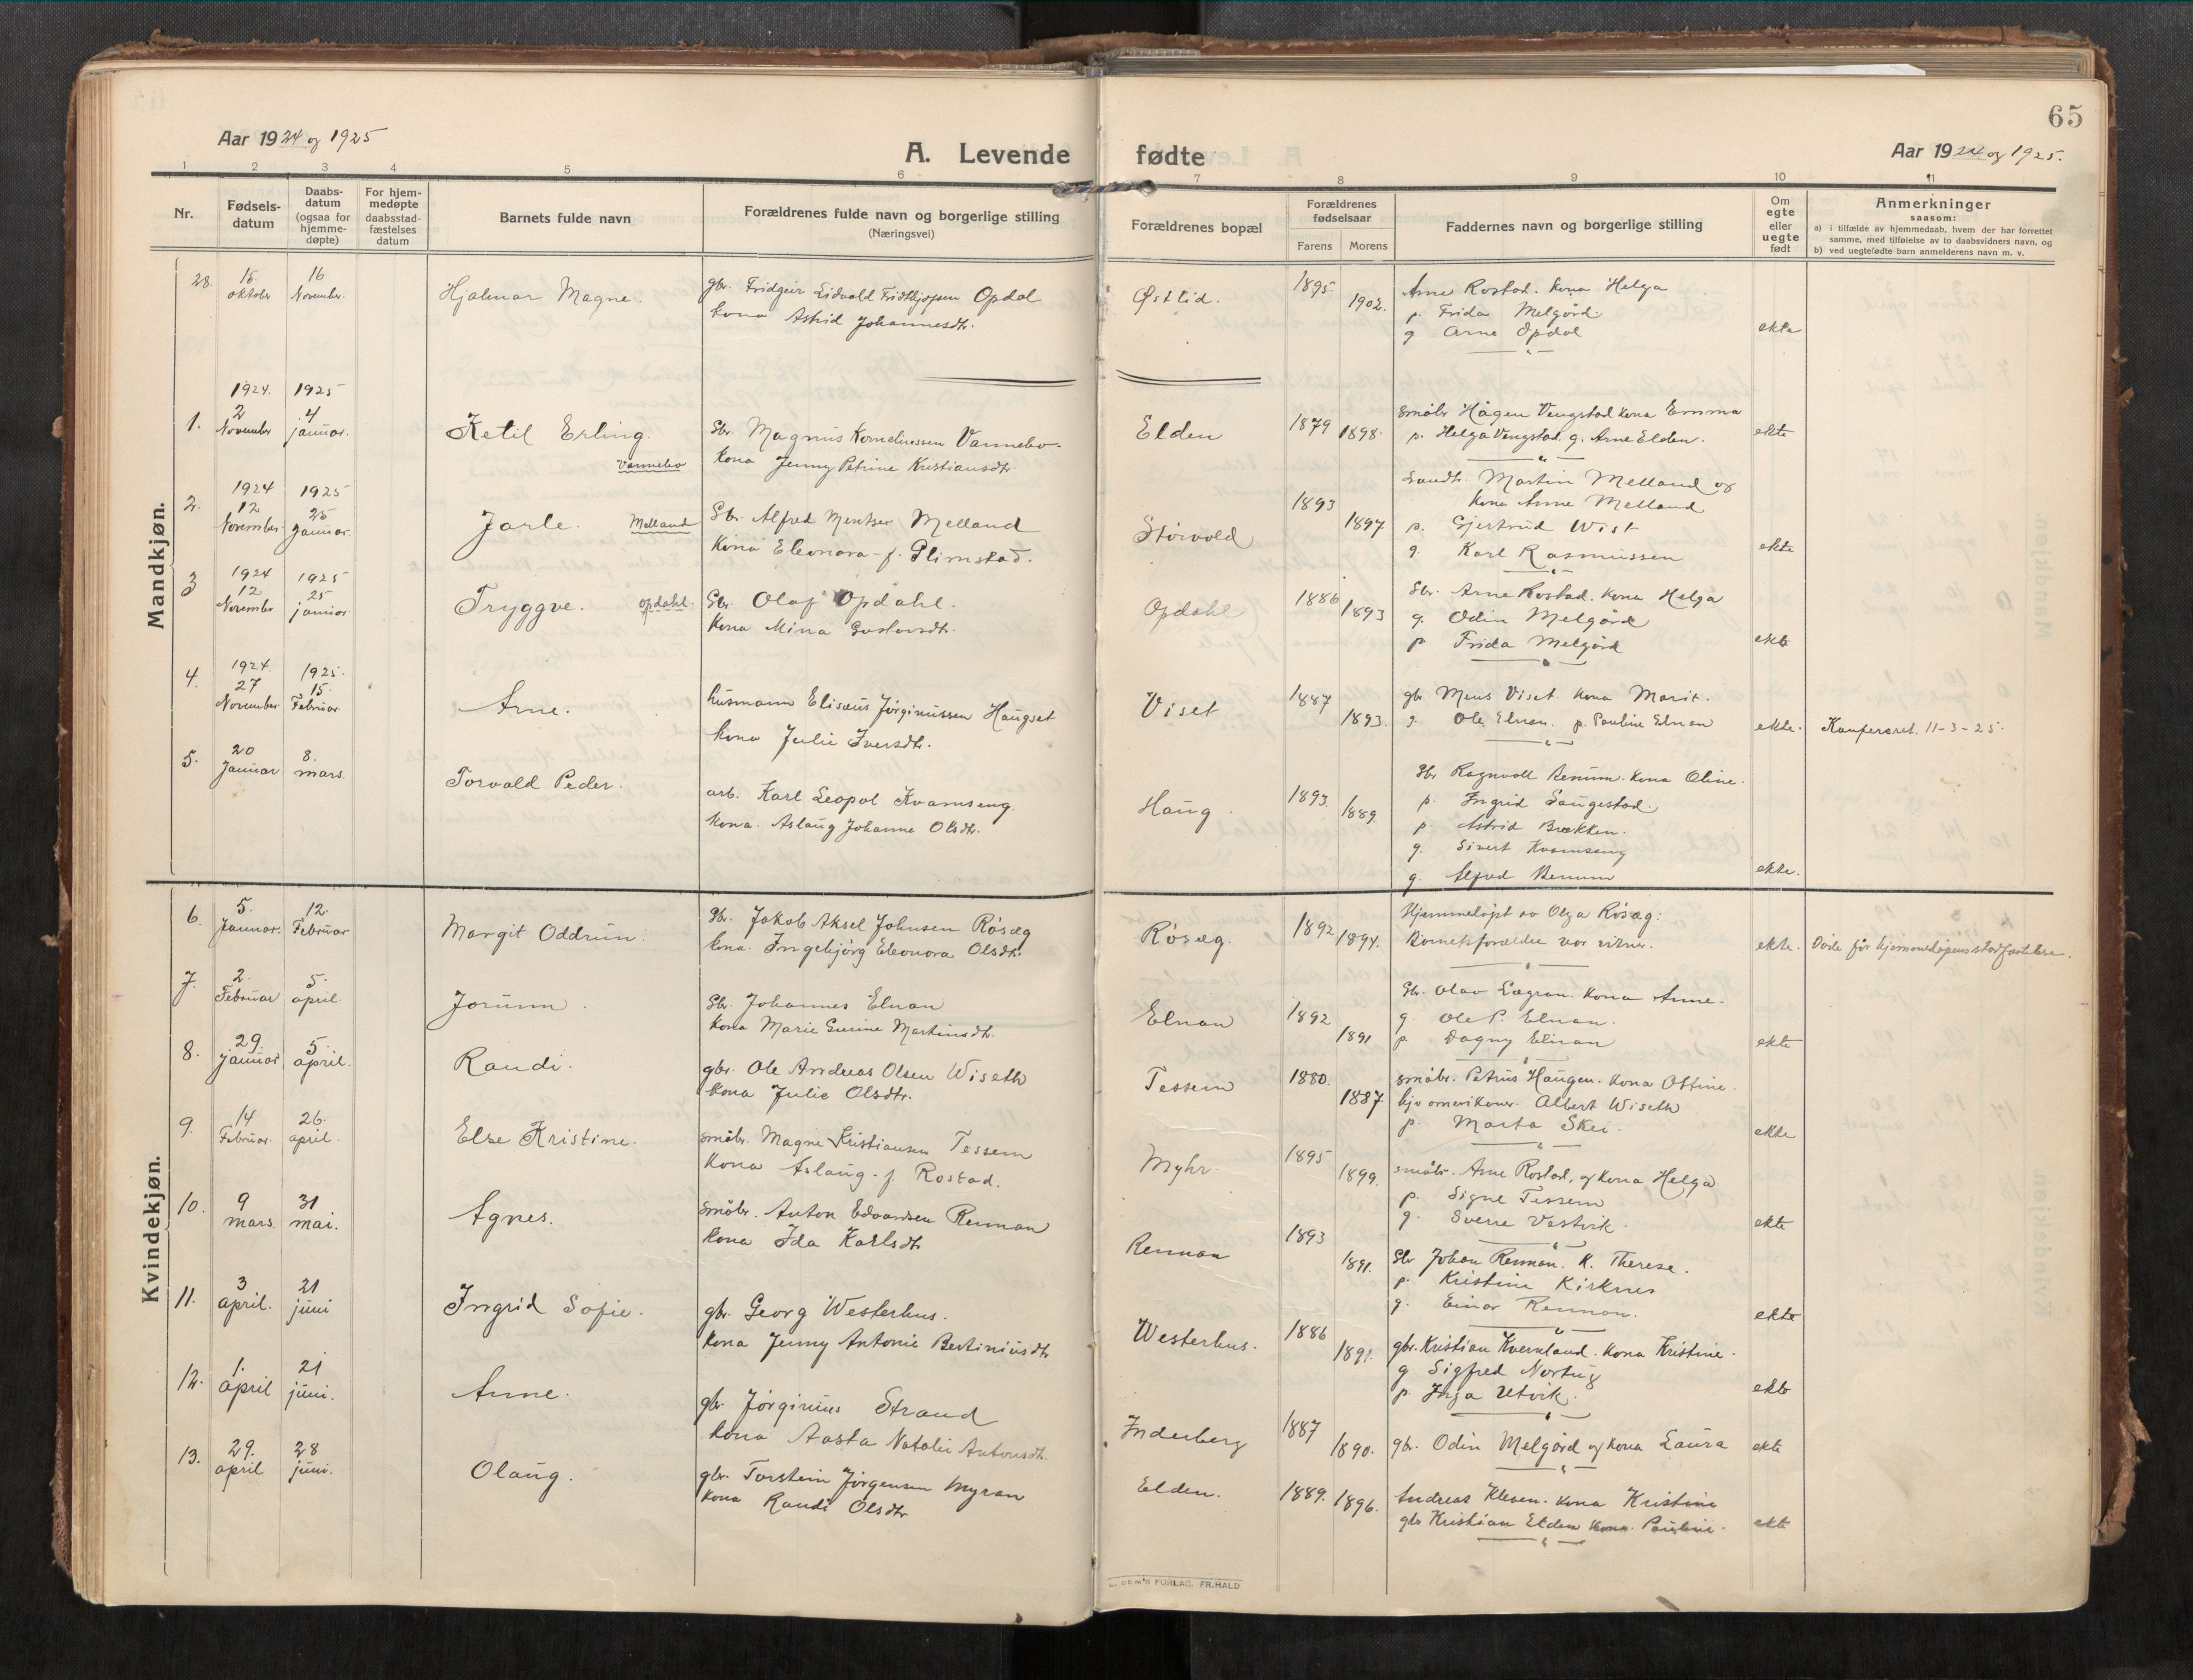 65
Aar 1924 og 1925
A. Levende fødte
Aar 1924 og 1925.
1 2 3 4 5 6 7 8 9 10 11
Nr.
Fødsels-
datum
Daabs-
datum
(ogsaa for
hjemme-
døpte)
For hjem-
medøpte
daabsstad-
fæstelses
datum
Barnets fulde navn
Forældrenes fulde navn og borgerlige stilling
(Næringsvei)
Forældrenes bopæl
Forældrenes
fødselsaar
Farens Morens
Faddernes navn og borgerlige stilling
Om
egte
eller
uegte
født
Anmerkninger
saasom:
a) i tilfælde av hjemmedaab, hvem der har forrettet
samme, med tilføielse av to daabsvidners navn, og
b) ved uegtefødte barn anmelderens navn m. v.
Mandkjøn.
28. 15. oktober 16 November.
Hjalmar Magne.
gbr. Fridgeir Lidvald Fridthjofsen Opdal
kona Astrid Johannesdtr.
Østlid.
1895 1902.
Arne Rostad. kona Helga
p. Frida Melgård.
g Arne Opdal
ekte
1924. 1925
1. 2 November 4 januar.
Ketil Erling.
Vannebo
Gbr. Magnus Korneliussen Vannebo.
kona Jenny Petrine Kristiansdtr
Elden
1879 1898.
småbr Hågen Vengstad kona Emma
p. Helga Vengstad. g. Arne Elden.
ekte
1924 1925
2. 12 November. 25 Januar.
Jarle. Melland
Gbr. Alfred Mentser Melland
Kona Eleonora f. Glimstad.
Størvold
1893 1897
Landh. Martin Melland og
kona Anne Melland
p. Gjertrud Wist
g. Karl Rasmussen
ekte
1924 1925
3 12 November 25 januar
Tryggve. opdahl.
Gbr Olaf Opdahl.
Kona Mina Gustavsdtr.
Opdahl
1886 1893
Gbr. Arne Rostad. kona Helga
g. Odin Melgård
p Frida Melgård
ekte
1924 1925.
4. 27 November 15. Februar
Arne.
husmann Elisæus Jørginussen Haugset
kona Julie Iversdtr.
Viset
1887 1893.
gbr Mens Viset kona Marit.
g. Ole Elnan. p. Pauline Elnan
ekte.
Konferert. 11-3-25.
5. 20 Januar 8. mars.
Torvald Peder.
arb. Karl Leopol Kvamseng.
kona. Aslaug Johanne Olsdtr.
Haug.
1893. 1889.
Gbr Ragnvald Benum. kona Oline.
p. Ingrid Saugestad.
p. Astrid Brækken.
g. Sivert Kvamseng
g. Alfred Benum
ekte.
Kvindekjøn.
6. 5. Januar. 12. Februar
Margit Oddrun.
Gbr. Jakob Aksel Johnsen Røsæg
kna. Ingebjørg Eleonora Olsdtr.
Røsæg.
1892 1894.
Hjemmedøpt av Olga Røsæg:
Barnetsforældre var vitner.
ekte.
Døde før hjemmedåpens stadfæstelse.
7. 2. Februar 5. april
Jorunn.
Gbr. Johannes Elnan
kona Marie Gurine Martinsdtr.
Elnan
1892 1891
Gbr. Olav Lægran. kona Anne.
g. Ole P. Elnan.
p Dagny Elnan
ekte
8. 29. januar 5. april.
Randi.
gbr. Ole Andreas Olsen Wiseth
kona Julie Olsdtr.
Tessem
1880. 1887.
småbr. Petrus Haugen. kona Ottine.
hjv amerikaner. Albert Wiseth
p. Marta Skei.
ekte
9. 14 Februar. 26. april.
Else Kristine.
småbr. Magne Kristiansen Tessem
Kona Aslaug f. Rostad.
Myhr.
1895 1899.
småbr. Arne Rostad, og kona Helga
p. Signe Tessem
g. Sverre Vestvik.
ekte
10. 9 mars. 31 mai.
Agnes.
småbr. Anton Edvardsen Rennan
kona Ida Karlsdtr
Rennan
1893 1891.
Gbr Johan Rennan. K. Therese.
p. Kristine Kirknes
g. Einar Rennan.
ekte
11. 3 april. 21 juni
Ingrid Sofie.
gbr. Georg Westerhus.
kona Jenny Antonie Bertiniusdtr
Westerhus.
1886 1891.
gbr. Kristian Kvernland. kona Kristine.
g Sigfred Nortug
p. Inga Utvik.
ekte
12. 1. april 21 juni.
Anne.
gbr Jørginus Strand
kona Aasta Natalie Antonsdtr.
Inderberg
1887 1890.
gbr. Odin Melgård og kona Laura
ekte
13. 29. april 28 juni.
Olaug.
gbr. Torstein Jørgensen Myran
kona Randi Olsdtr
Elden.
1889. 1896.
Andreas Kleven. kona Kristine
gbr Kristian Elden kona Pauline.
ekte
FORLAG. FR. HALD